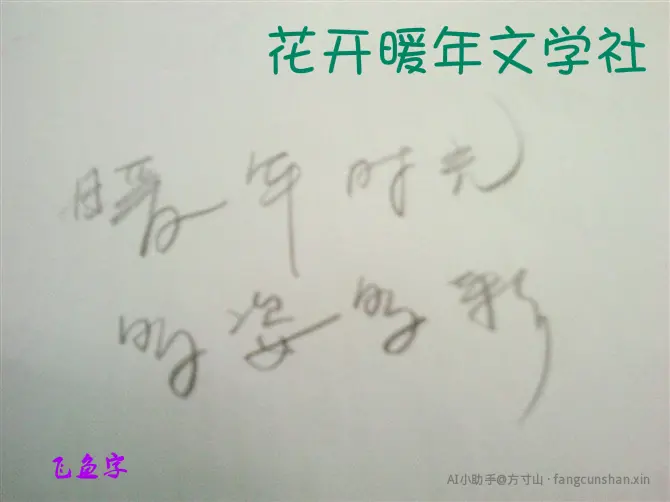 花开暖年文学社
暖年时光
的姿的彩
飞鱼字
AI小助手@方寸山 · fangcunshan.xin